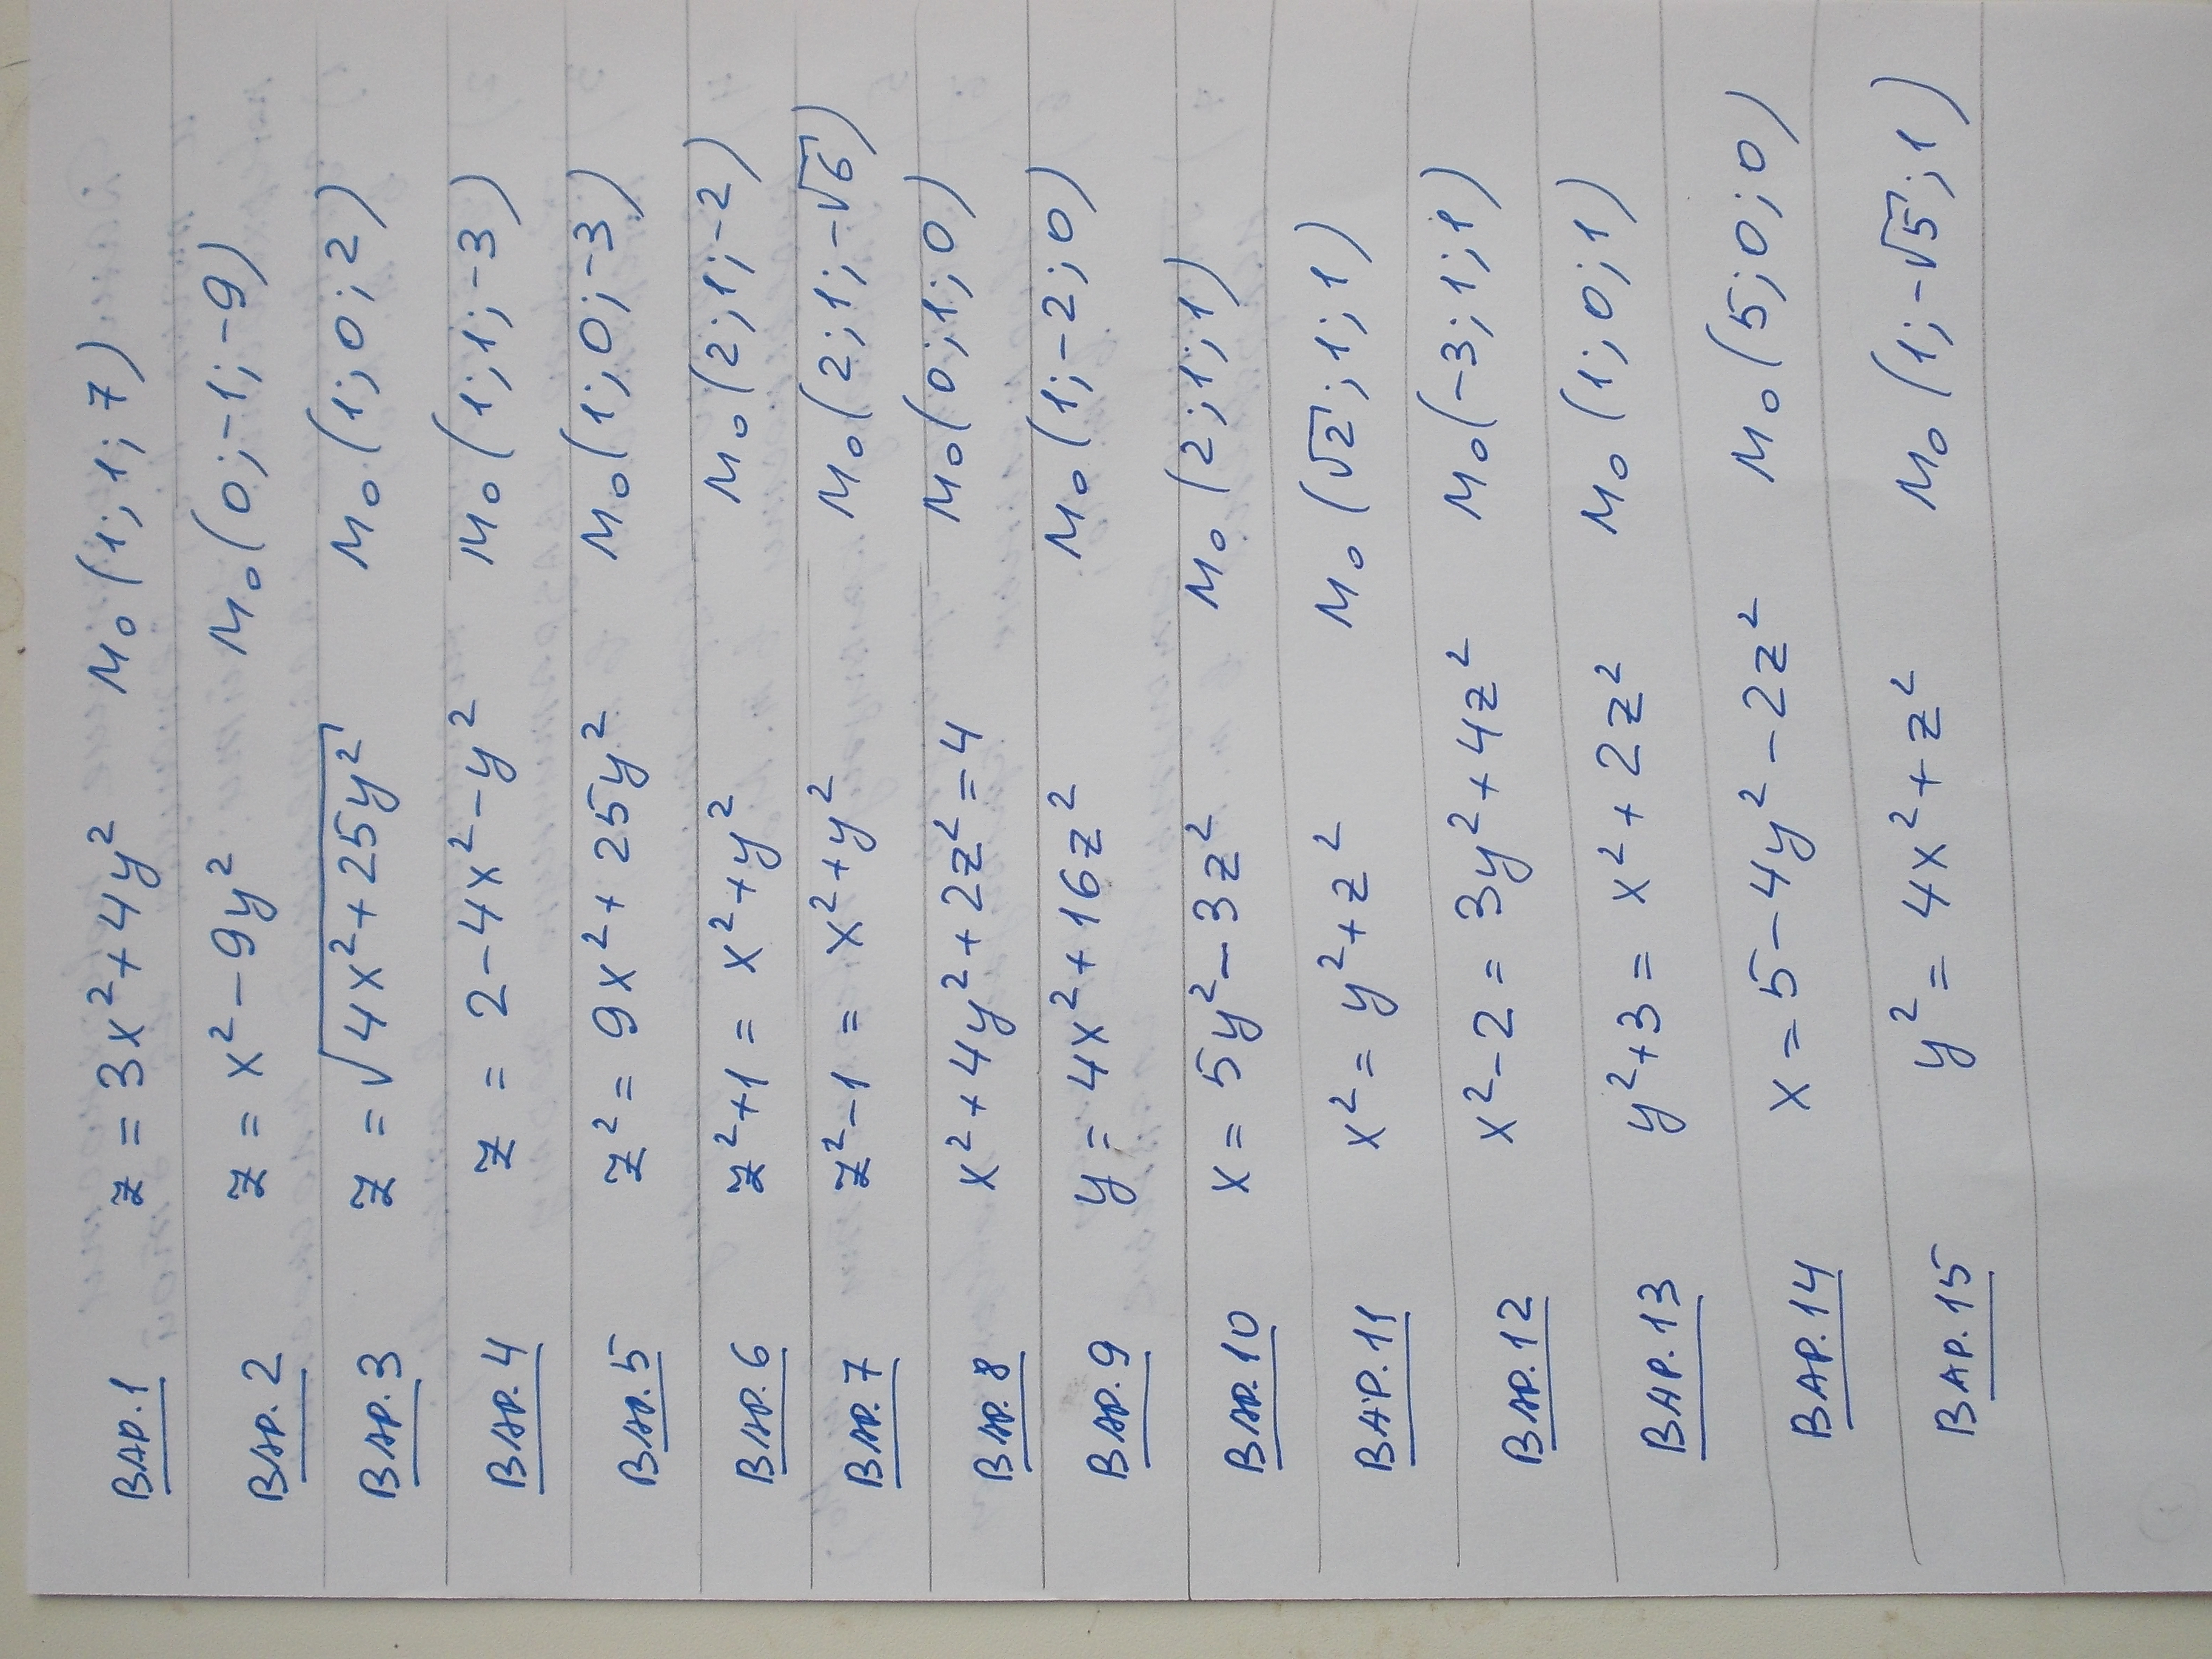 ВАР.1 z = 3x²+4y² M₀(1;1;7)
ВАР.2 z = x²-9y² M₀(0;-1;-9)
ВАР.3 z = √4x²+25y² M₀(1;0;2)
ВАР.4 z = 2-4x²-y² M₀(1;1;-3)
ВАР.5 z² = 9x²+25y² M₀(1;0;-3)
ВАР.6 z²+1 = x²+y² M₀(2;1;-2)
ВАР.7 z²-1 = x²+y² M₀(2;1;-√6)
ВАР.8 x²+4y²+2z²=4 M₀(0;1;0)
ВАР.9 y = 4x²+16z² M₀(1;-2;0)
ВАР.10 x = 5y²-3z² M₀(2;1;1)
ВАР.11 x² = y²+z² M₀(√2;1;1)
ВАР.12 x²-2 = 3y²+4z² M₀(-3;1;1)
ВАР.13 y²+3 = x²+2z² M₀(1;0;1)
ВАР.14 x = 5-4y²-2z² M₀(5;0;0)
ВАР.15 y² = 4x²+z² M₀(1;-√5;1)